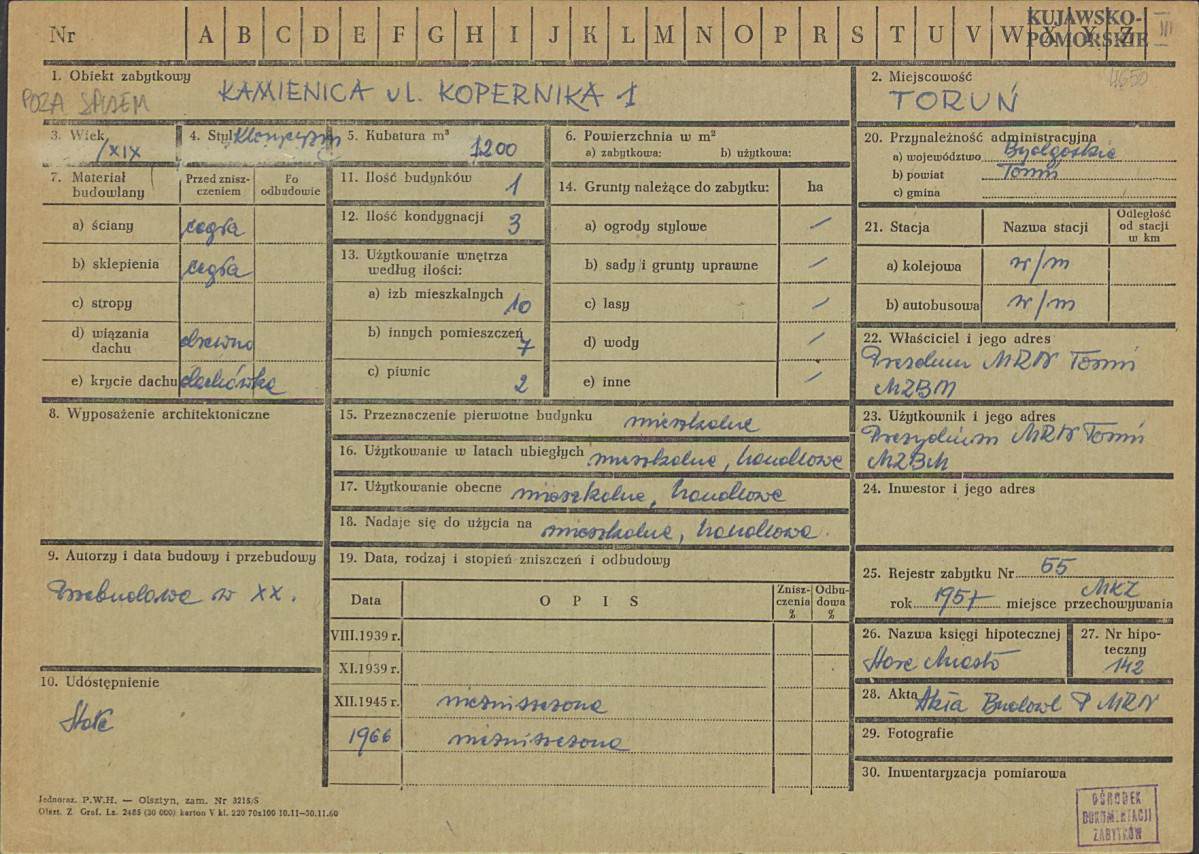 Nr A B C D E F G H I J K L M N O P R S T U V W X Y Z
KUJAWSKO-
POMORSKIE
III
4650
1. Obiekt zabytkowy
POZA SPISEM
KAMIENICA ul. KOPERNIKA 1
2. Miejscowość
TORUŃ
3. Wiek
XIX
4. Styl klasycyzm
5. Kubatura m³
1200
6. Powierzchnia w m²
a) zabytkowa: b) użytkowa:
7. Materiał budowlany
Przed zniszczeniem
Po odbudowie
a) ściany cegła
b) sklepienia cegła
c) stropy
d) wiązania dachu drewno
e) krycie dachu dachówka
11. Ilość budynków 1
12. Ilość kondygnacji 3
13. Użytkowanie wnętrza
według ilości:
a) izb mieszkalnych 10
b) innych pomieszczeń 7
c) piwnic 2
14. Grunty należące do zabytku: ha
a) ogrody stylowe /
b) sady i grunty uprawne /
c) lasy /
d) wody /
e) inne /
20. Przynależność administracyjna
a) województwo Bydgoskie
b) powiat Toruń
c) gmina
21. Stacja Nazwa stacji
Odległość
od stacji
w km
a) kolejowa w/m
b) autobusowa w/m
22. Właściciel i jego adres
Prezydium MRN Toruń
MZBM
23. Użytkownik i jego adres
Prezydium MRN Toruń
MZBM
24. Inwestor i jego adres
8. Wyposażenie architektoniczne
15. Przeznaczenie pierwotne budynku mieszkalne
16. Użytkowanie w latach ubiegłych mieszkalne, handlowe
17. Użytkowanie obecne mieszkalne, handlowe
18. Nadaje się do użycia na mieszkalne, handlowe.
9. Autorzy i data budowy i przebudowy
Przebudowa w XX.
10. Udóstępnienie
Stałe
19. Data, rodzaj i stopień zniszczeń i odbudowy
Data OPIS
Znisz-
czenia
%
Odbu-
dowa
%
VIII.1939 r.
XI.1939 r.
XII.1945 r. niezniszczona
1966 niezniszczona
25. Rejestr zabytku Nr 55
rok 1957 miejsce przechowywania MKZ
26. Nazwa księgi hipotecznej
Stare Miasto
27. Nr hipo-
teczny
142
28. Akta Akta Budowl P MRN
29. Fotografie
30. Inwentaryzacja pomiarowa
Jednoraz. P.W.H. — Olsztyn, zam. Nr 3215/S
Olszt. Z. Graf. Lz. 2485 (30 000) karton V kl. 220 70x100 10.11—30.11.60
OŚRODEK
DOKUMENTACJI
ZABYTKÓW